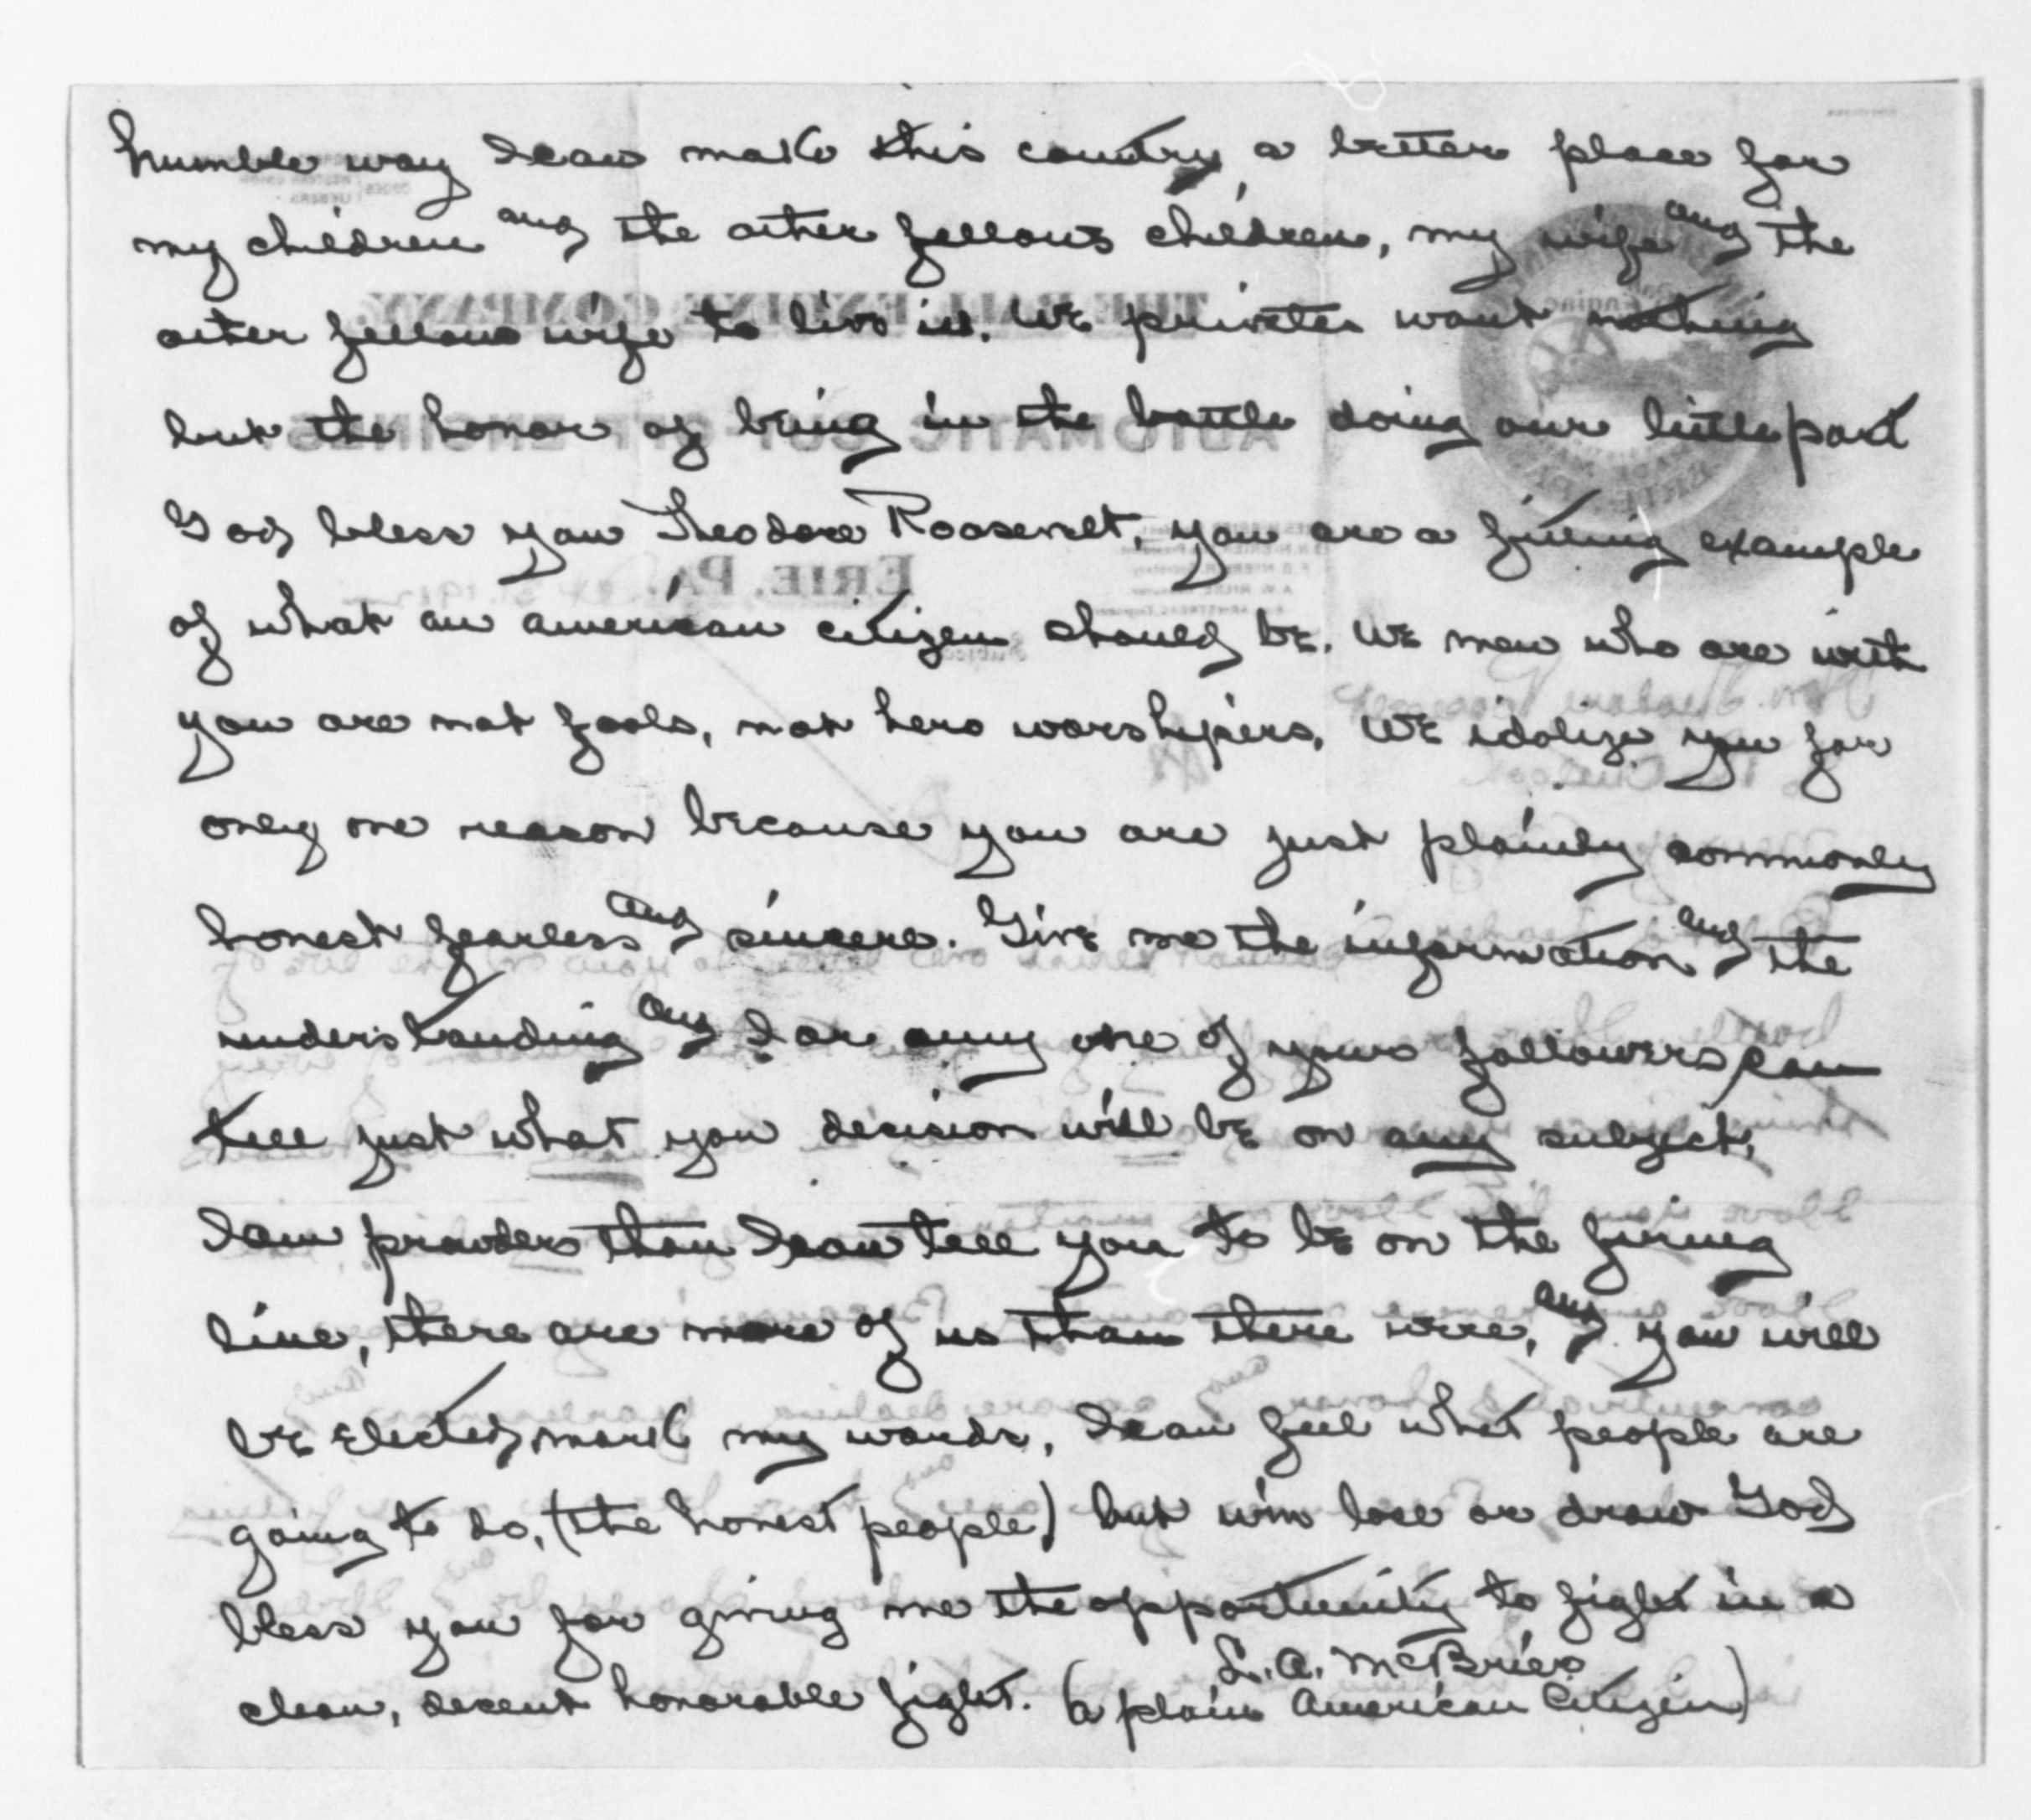 humble way I can make this country a better place for
my children and the other fellows children, my wife and the
other fellows wife to live in. We privates want nothing
but the honor of being in the battle doing our little part
God bless you Theodore Roosevelt, you are a fitting example
of what an american citizen should be. We men who are with
you are not fools, not hero worshipers, We idolize you for
only one reason because you are just plainly commonly
honest fearless and sincere. Give me the information and the
understanding and I or any one of your followers can
tell just what you decision will be on any subject,
I am prouder than I can tell you to be on the firing
line, there are more of us than there were, and you will
be elected, mark my words, I can feel what people are
going to do, (the honest people) but win lose or draw God
bless you for giving me the opportunity to fight in a
clean, decent honorable fight.
L. A. McBrier
(a plain American Citizen)
THE BALL ENGINE COMPANY.
AUTOMATIC CUT OFF ENGINES
ERIE, PA.